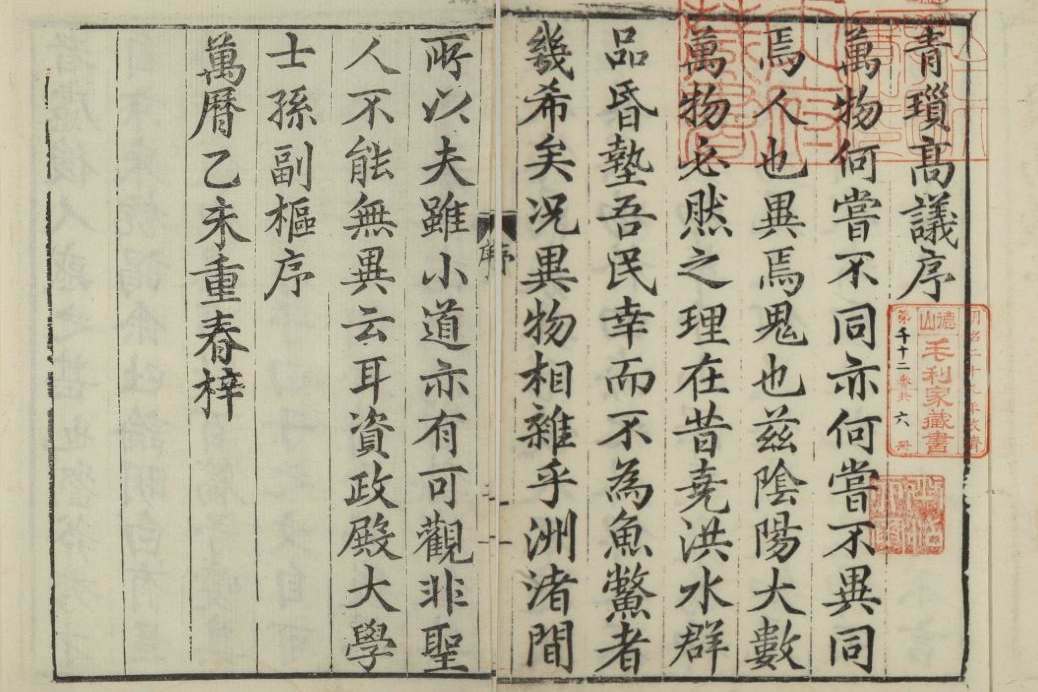 青瑣高議序
萬物何嘗不同亦何嘗不異同
焉人也異焉鬼也茲陰陽大數
萬物必然之理在昔堯洪水群
品昏墊吾民幸而不為魚鱉者
幾希矣况異物相雜乎洲渚間
序
所以夫雖小道亦有可觀非聖
人不能無異云耳資政殿大學
士孫副樞序
萬曆乙未重春梓
德山
毛利家藏書
第千十二
共六冊